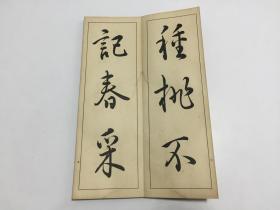 種桃不
記春采